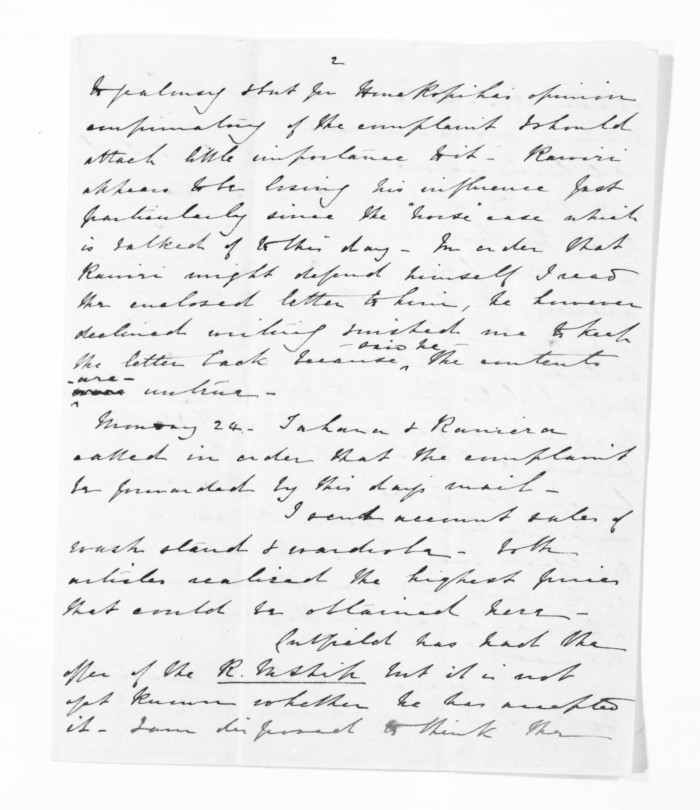 2
to jealousy & but for Honekopi his opinion
confirmatory of the complaint I should
attach little importance to it - Rawiri
appears to be losing his influence fast
particularly since the "horse" case which
is talked of to this day - In order that
Rawiri might defend himself I read
the enclosed letter to him, he however
declined writing & wished me to keep
the letter back because, said he - the contents
are untrue -
Monday 24 - Tahana & Raniera
called in order that the complaint
be forwarded by this day's mail -
I send account sales of
wash stand & wardrobe - both
articles realized the highest prices
that could be obtained here -
Cutfield has had the
offer of the R. Mstship but it is not
yet known whether he has accepted
it - I am disposed to think the